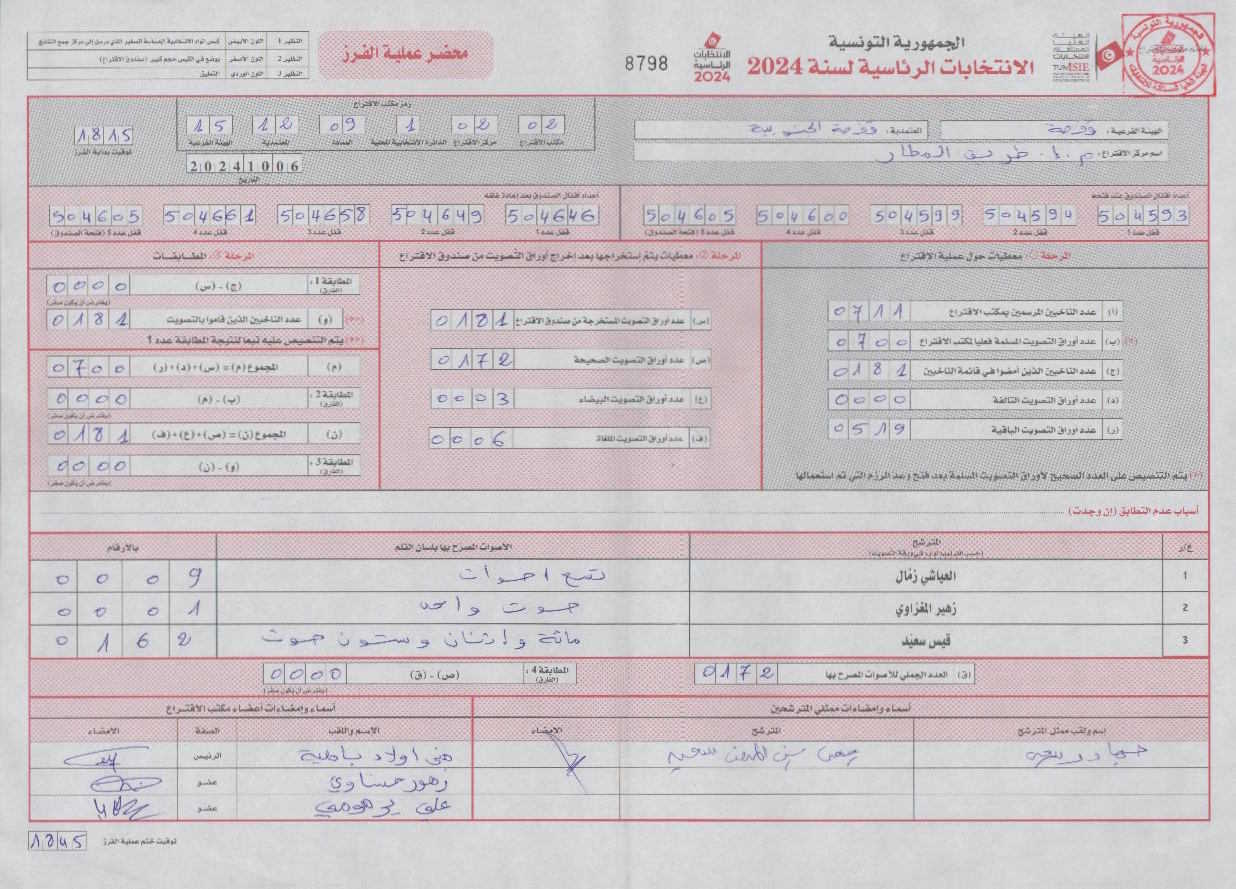 الجمهورية التونسية
الانتخابات الرئاسية لسنة 2024
الهيئة
العليا
المستقلة
للانتخابات
TUNISIE
الانتخابات
الرئاسية
2024
8798
محضر عملية الفرز
النظير 1 اللون الأبيض
النظير 2 اللون الأصفر
النظير 3 اللون الوردي التعليق
الهيئة الفرعية : قفصة
المعتمدية : قفصة الجنوبية
اسم مركز الاقتراع : م.إ. طريق المطار
رمز مكتب الاقتراع
02 02 1 09 12 15
مكتب الاقتراع مركز الاقتراع الدائرة الانتخابية المحلية العمادة المعتمدية الهيئة الفرعية
1815
توقيت بداية الفرز
20241006
التاريخ
أعداد أقفال الصندوق عند فتحه
504593 504594 504599 504600 504605
قفل عدد 1 قفل عدد 2 قفل عدد 3 قفل عدد 4 قفل عدد 5 (فتحة الصندوق)
أعداد أقفال الصندوق بعد إعادة غلقه
504646 504649 504658 504661 504605
قفل عدد 1 قفل عدد 2 قفل عدد 3 قفل عدد 4 قفل عدد 5 (فتحة الصندوق)
المرحلة 1: معطيات حول عملية الاقتراع
(أ) عدد الناخبين المرسمين بمكتب الاقتراع 0711
(*) (ب) عدد أوراق التصويت المسلمة فعليا لمكتب الاقتراع 0700
(ج) عدد الناخبين الذين أمضوا في قائمة الناخبين 0181
(د) عدد أوراق التصويت التالفة 0000
(ر) عدد أوراق التصويت الباقية 0519
(*) يتم التنصيص على العدد الصحيح لأوراق التصويت المسلمة بعد فتح وعد الرزم التي تم استعمالها
المرحلة 2: معطيات يتم إستخراجها بعد إخراج أوراق التصويت من صندوق الاقتراع
(س) عدد أوراق التصويت المستخرجة من صندوق الاقتراع 0181
(ص) عدد أوراق التصويت الصحيحة 0172
(ع) عدد أوراق التصويت البيضاء 0003
(ف) عدد أوراق التصويت الملغاة 0006
المرحلة 3: المطابقات
المطابقة 1 : (الفارق) (ج) - (س) 0000
(يفترض أن يكون صفر)
(**) (و) عدد الناخبين الذين قاموا بالتصويت 0181
(**) يتم التنصيص عليه تبعا لنتيجة المطابقة عدد 1
(م) المجموع (م) = (س)+(د)+(ر) 0700
المطابقة 2 : (الفارق) (ب) - (م) 0000
(يفترض أن يكون صفر)
(ن) المجموع (ن) = (ص)+(ع)+(ف) 0181
المطابقة 3 : (الفارق) (و) - (ن) 0000
(يفترض أن يكون صفر)
أسباب عدم التطابق (إن وجدت)
ع/ر المترشح الأصوات المصرح بها بلسان القلم بالأرقام
(حسب الترتيب الوارد في ورقة التصويت)
1 العياشي زمّال تسع اصوات 0009
2 زهير المغزاوي صوت واحد 0001
3 قيس سعيّد مائة وإثنان وستون صوت 0162
(ق) العدد الجملي للأصوات المصرح بها 0172
المطابقة 4 : (الفارق) (ص) - (ق) 0000
(يفترض أن يكون صفر)
أسماء وإمضاءات ممثلي المترشحين
اسم ولقب ممثل المترشح المترشح الإمضاء
أسماء وإمضاءات أعضاء مكتب الاقتراع
الاسم واللقب الصفة الامضاء
الرئيس
عضو
عضو
توقيت ختم عملية الفرز 1845